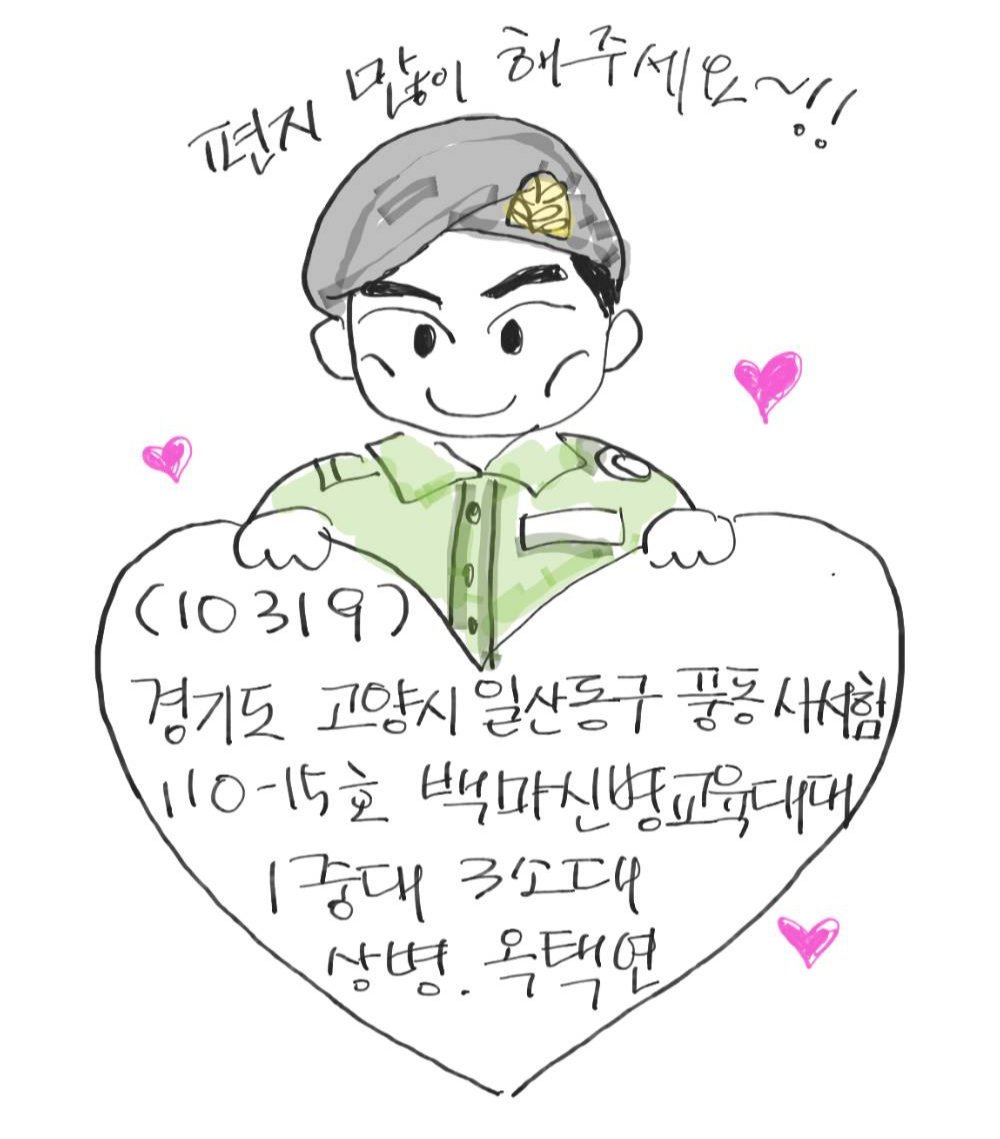 편지 많이 해주세요~!!
(10319)
경기도 고양시 일산동구 풍동 사서함
110-15호 백마신병교육대대
1중대 3소대
상병. 옥택연